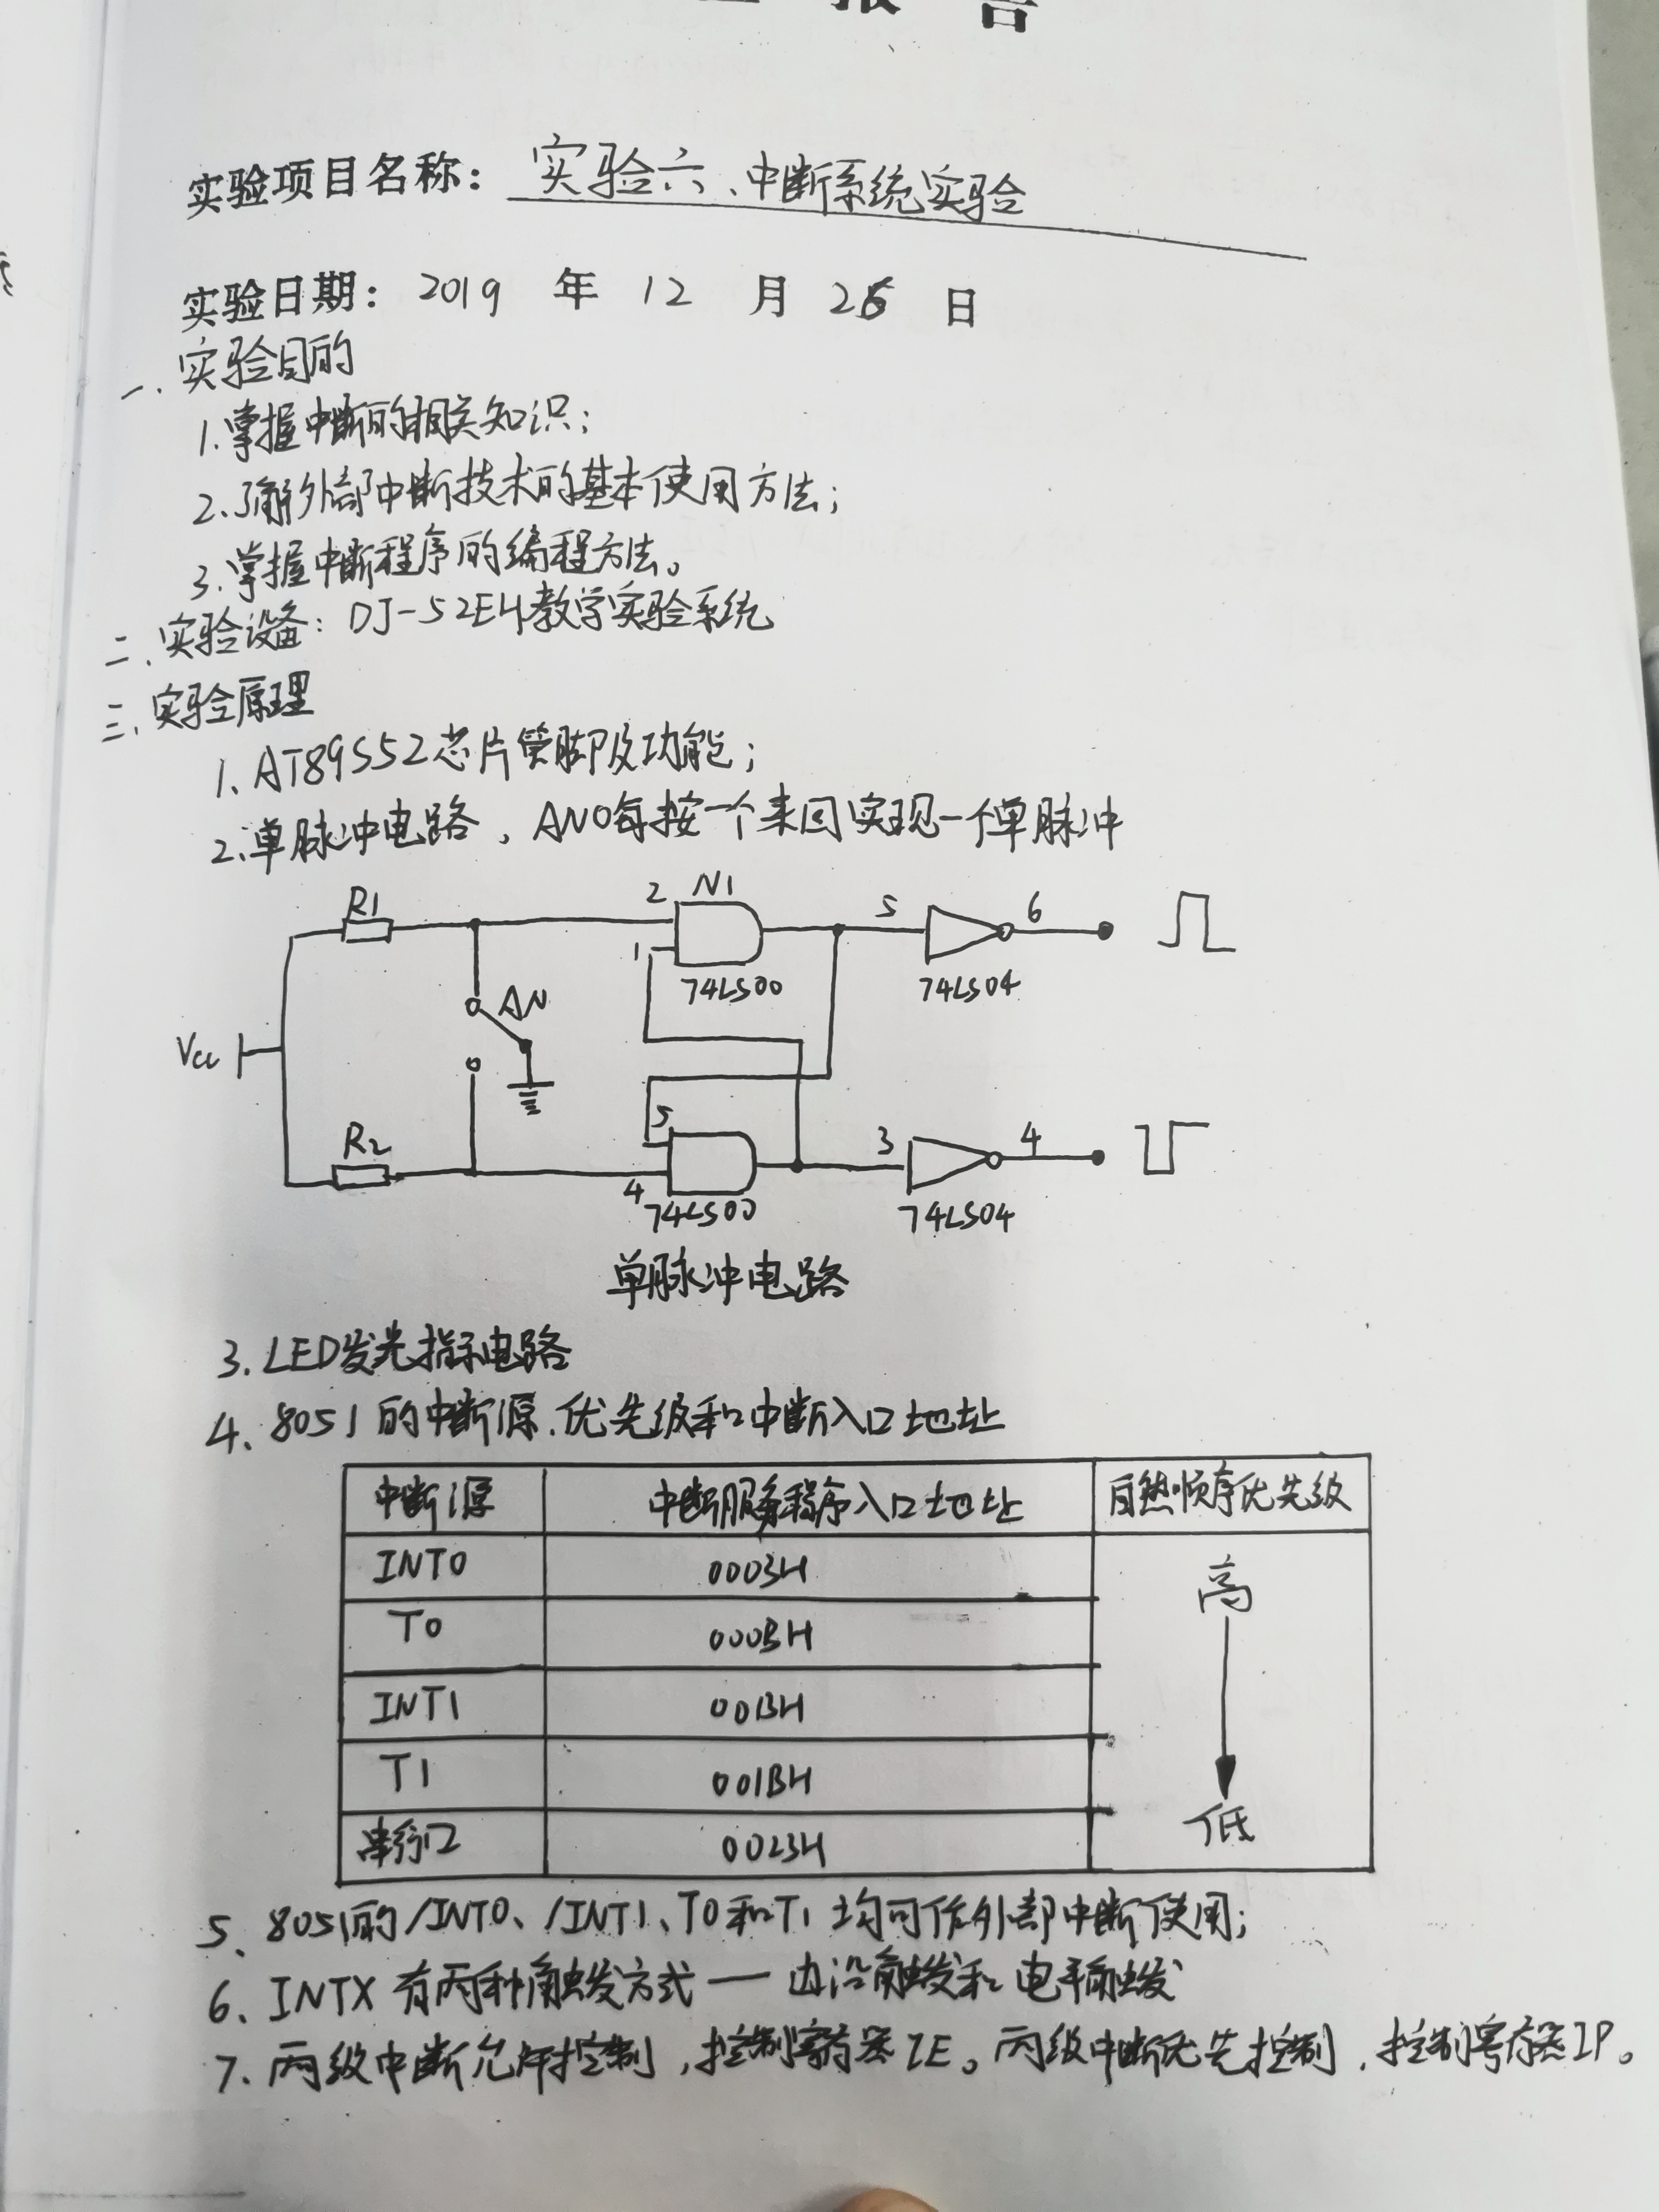 报告
实验项目名称: 实验六、中断系统实验
实验日期: 2019 年 12 月 26 日
一. 实验目的
1. 掌握中断的相关知识;
2. 了解外部中断技术的基本使用方法;
3. 掌握中断程序的编程方法。
二. 实验设备: DJ-52EH教学实验系统
三. 实验原理
1. AT89S52芯片管脚及功能;
2. 单脉冲电路, AN0每按一个来回实现一个单脉冲
R1 2 N1 5 6
1 74LS00 74LS04
AN
Vcc
R2 5 3 4
4 74LS00 74LS04
单脉冲电路
3. LED发光指示电路
4. 8051的中断源.优先级和中断入口地址
中断源 中断服务程序入口地址 自然顺序优先级
INT0 0003H 高
T0 000BH
INT1 0013H
T1 001BH
串行口 0023H 低
5. 8051的/INT0、/INT1、T0和T1 均可作外部中断使用;
6. INTX 有两种触发方式 — 边沿触发和电平触发
7. 两级中断允许控制, 控制寄存器IE。两级中断优先控制, 控制寄存器IP。